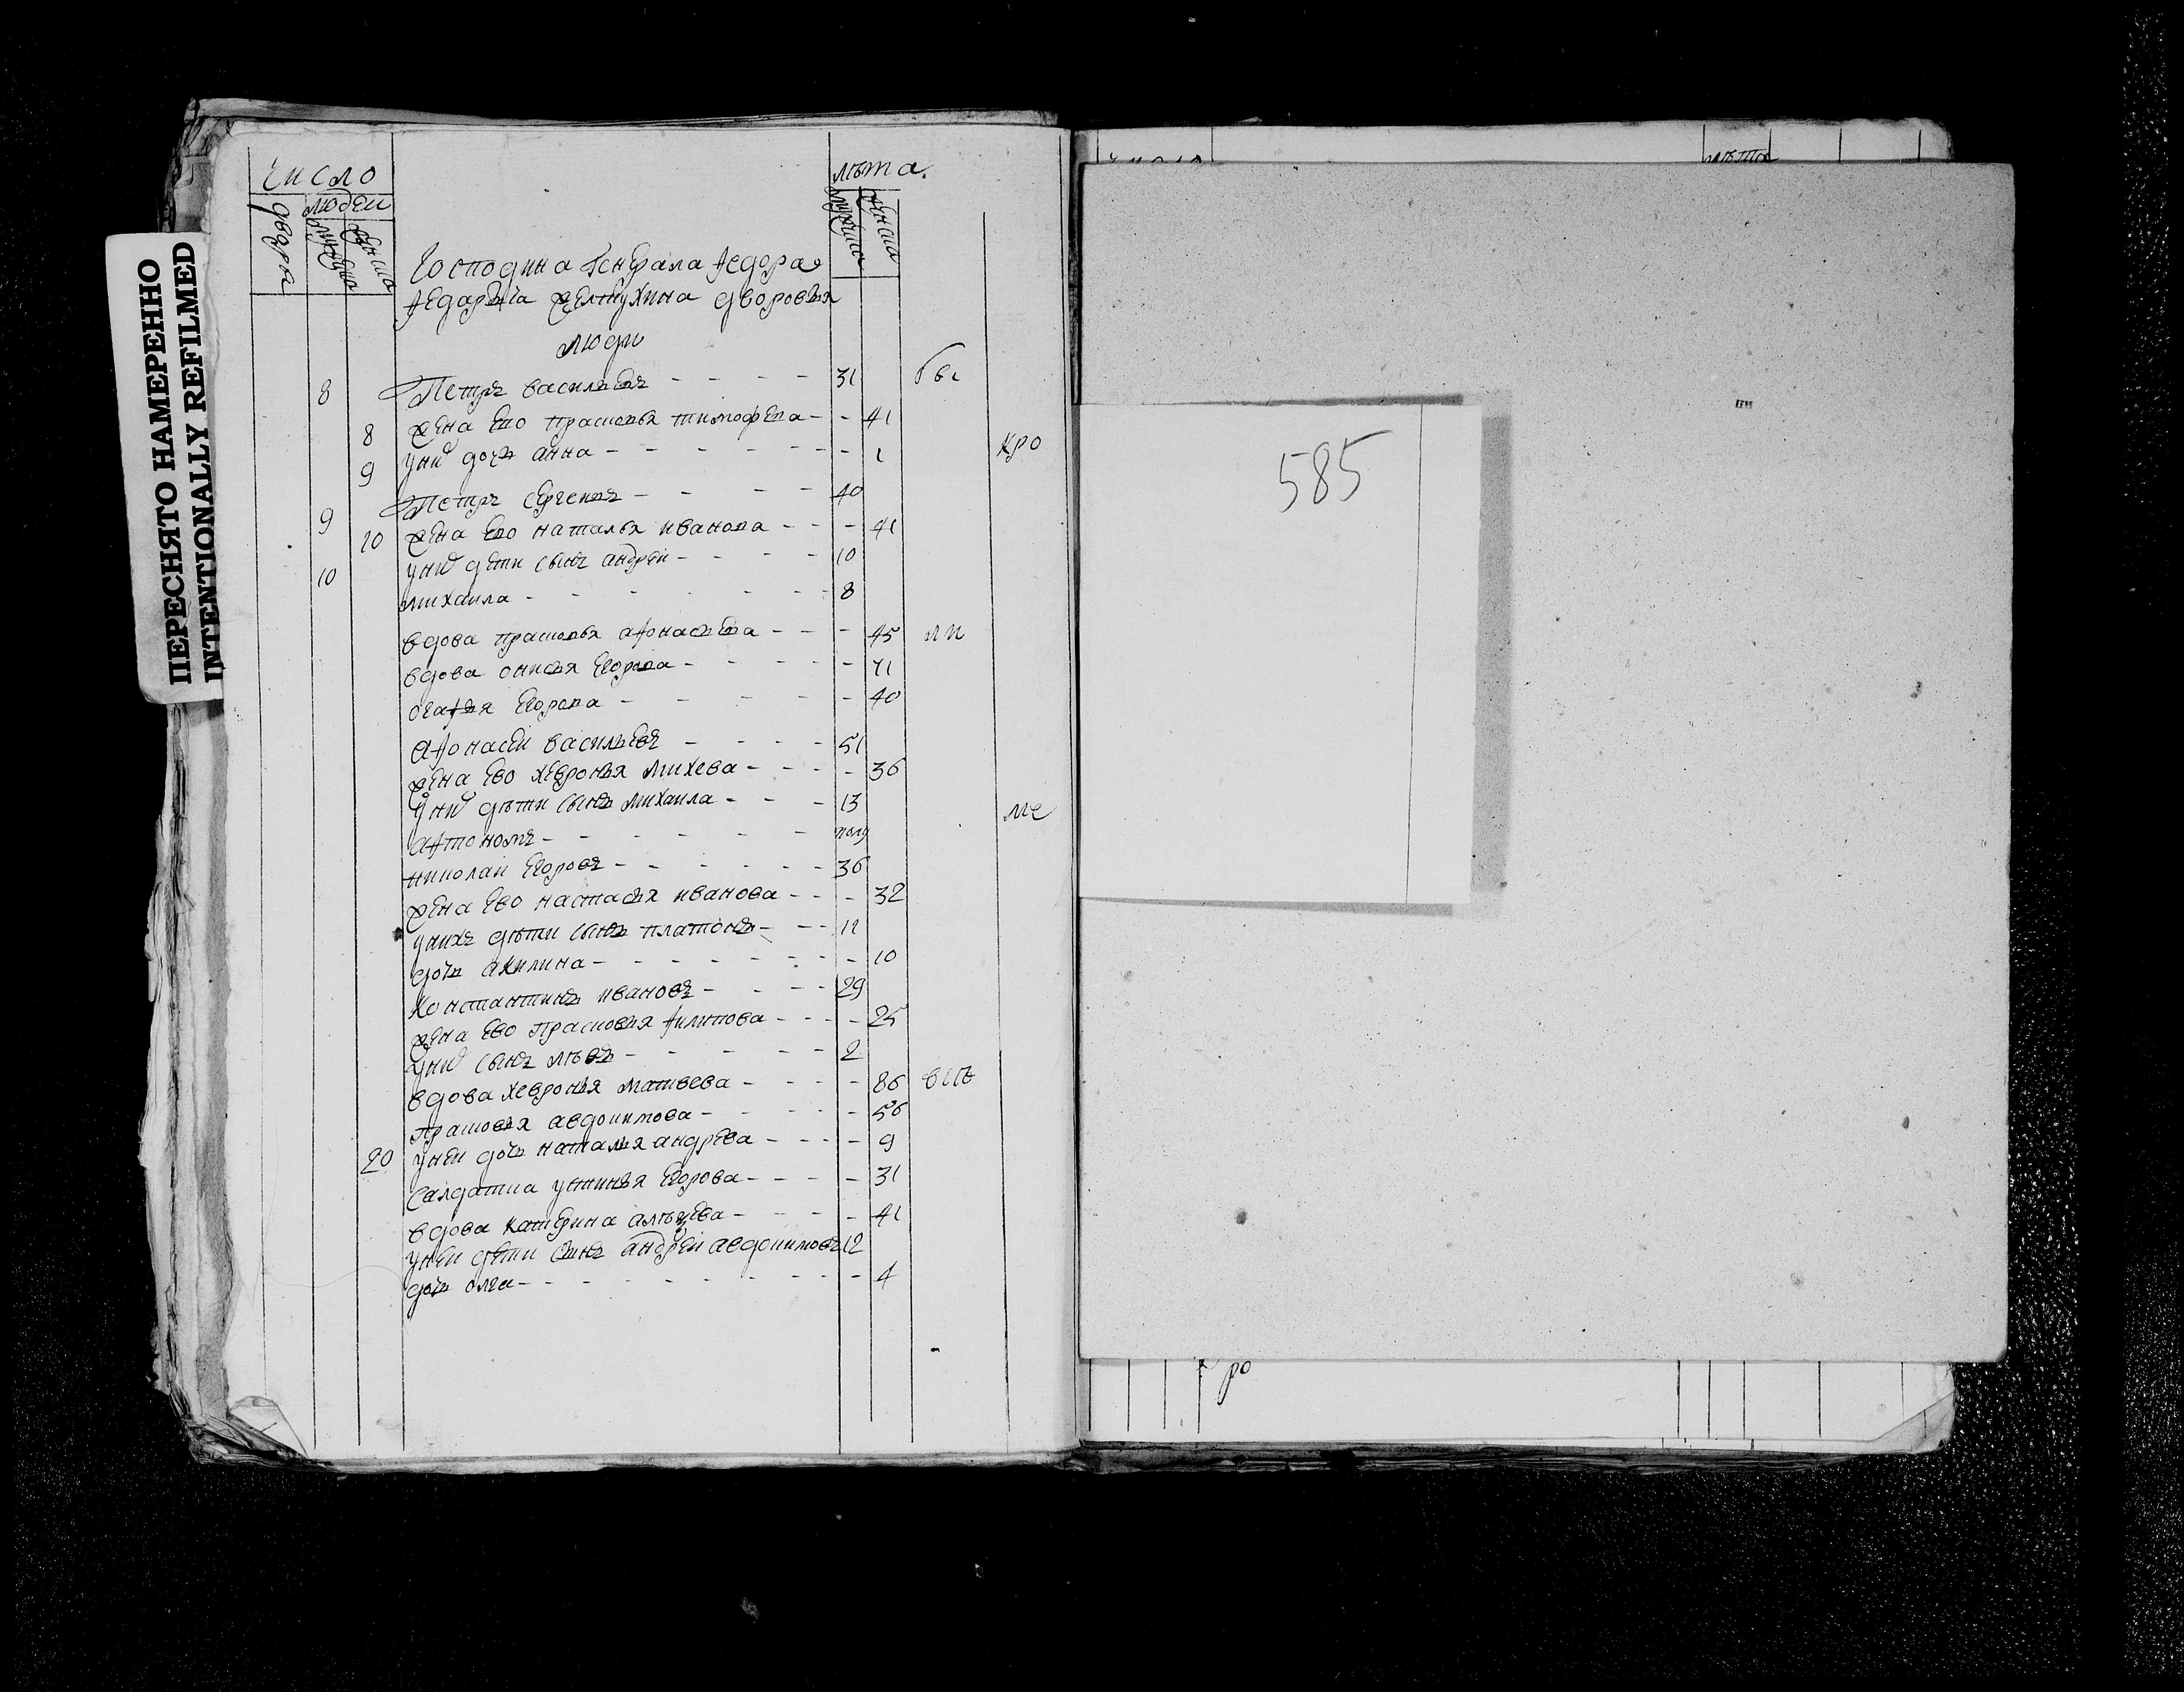 ПЕРЕСНЯТО НАМЕРЕННО
INTENTIONALLY REFILMED
число
лѣта.
двора
людеи
мужеска
женска
мужеска
женска
Господина Генерала Ѳедора
Ѳедарыча Желтухина дворовыя
люди
8 Петръ васильевъ - - - - 31 бы
8 жена ево прасковья тимофѣева - - 41
9 уних дочь анна - - - - - - - 1 кро
9 Петръ сергеевъ - - - - 40
10 жена ево наталья иванова - - - 41
10 уних дети сынъ андреи - - - - 10
михаила - - - - - - 8
вдова прасковья аѳонасьева - - - 45 ли
вдова онисья Егорова - - - - - 41
огаѳья Егорова - - - - - 40
аѳонасеи васильевъ - - - - 51
жена ево хевронья михева - - - - 36
уних дѣти сынъ михаила - - - 13 ме
аѳтономъ - - - - - - полу
николаи Егоровъ - - - - - - 36
жена ево настасья иванова - - - 32
унихъ дѣти сынъ платонъ - - - 11
дочь акилина - - - - - - - - 10
Константинъ ивановъ - - - - 29
жена ево прасковья ѳилипова - - - - 25
уних сынъ лѣвъ - - - - - 2
вдова хевронья матвева - - - - 86 въ
прасковья авдокимова - - - - - 56
20 унеи дочь наталья андрева - - - - 9
салдатка устинья Егорова - - - - 31
вдова катерина алѣкѣева - - - - 41
унеи дети сынъ андреи авдокимовъ 12
дочь олга - - - - - - - - - 4
585
лѣта
ро